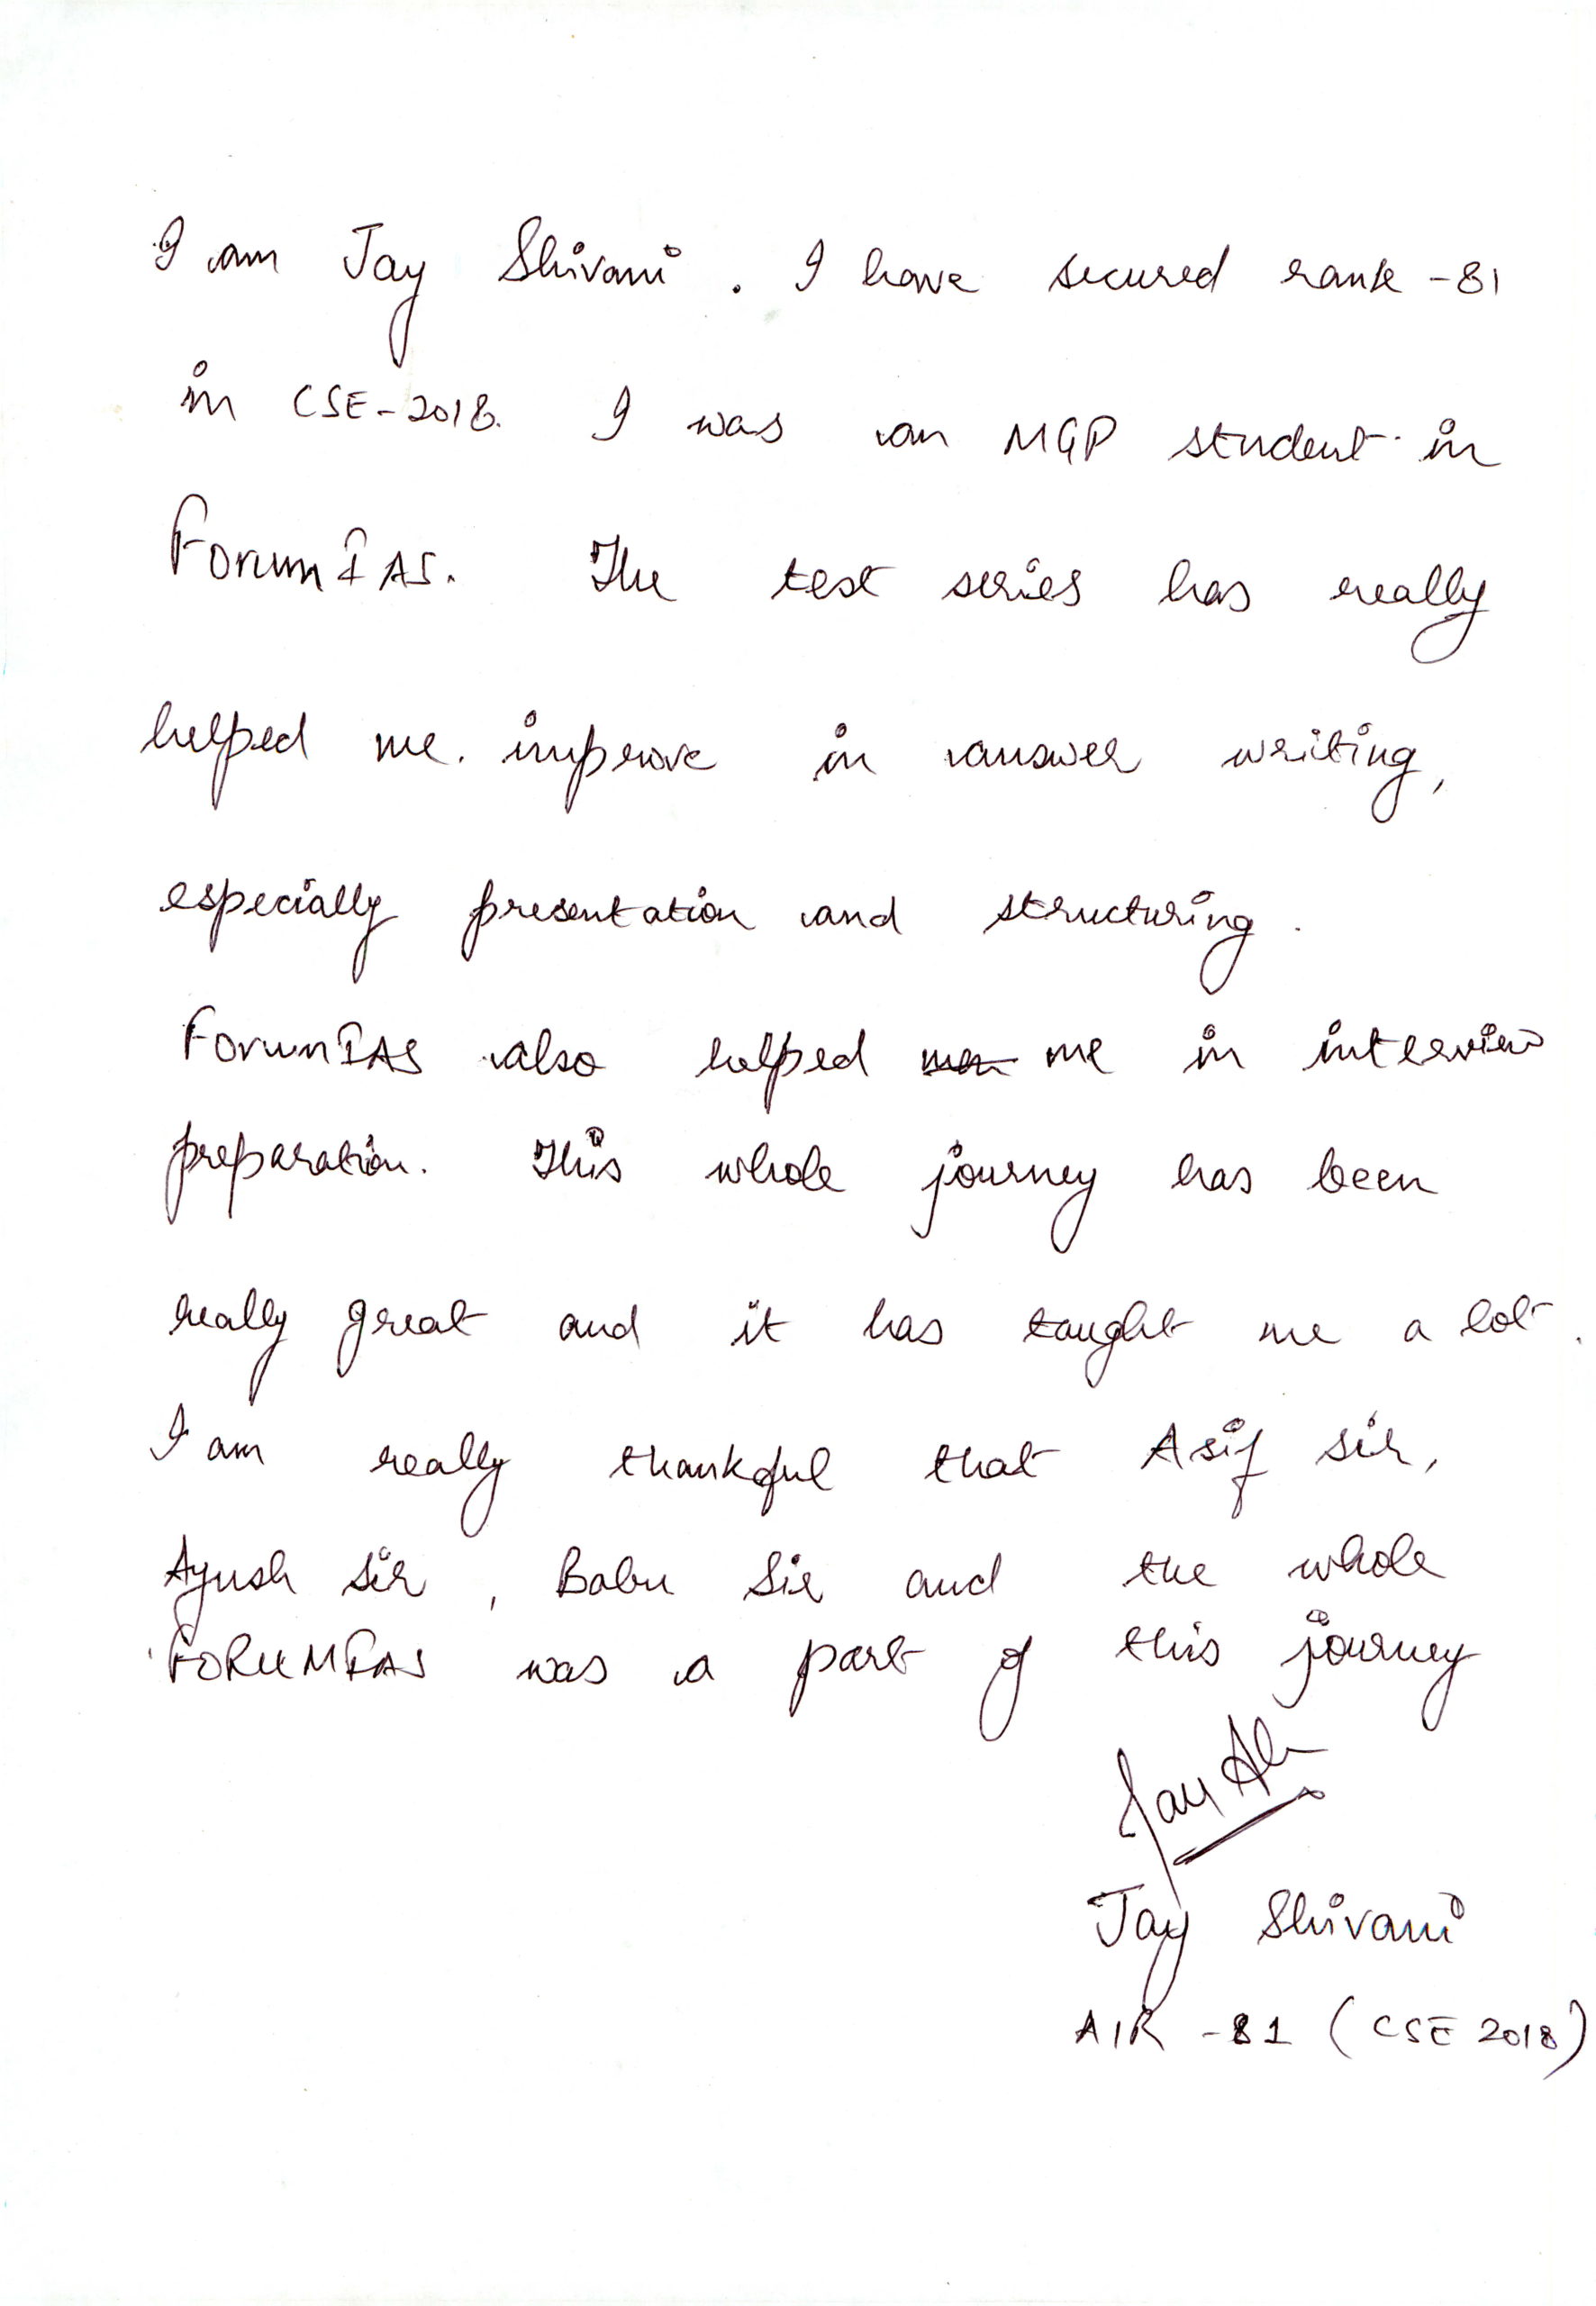 I am Jay Shivani. I have secured rank -81
in CSE-2018. I was an MGP student in
ForumIAS. The test series has really
helped me. improve in answer writing,
especially presentation and structuring.
ForumIAS also helped me in interview
preparation. This whole journey has been
really great and it has taught me a lot.
I am really thankful that Asif sir,
Ayush sir, Babu Sir and the whole
FORUMIAS was a part of this journey
Jay Shivani
AIR -81 (CSE 2018)